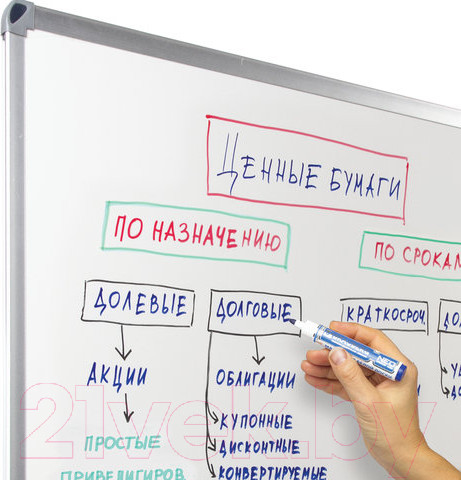 ЦЕННЫЕ БУМАГИ
ПО НАЗНАЧЕНИЮ
ПО СРОКАМ
ДОЛЕВЫЕ
ДОЛГОВЫЕ
КРАТКОСРОЧ.
АКЦИИ
ОБЛИГАЦИИ
КУПОННЫЕ
ПРОСТЫЕ
ДИСКОНТНЫЕ
ПРИВЕЛИГИРОВ
КОНВЕРТИРУЕМЫЕ
21vek.by